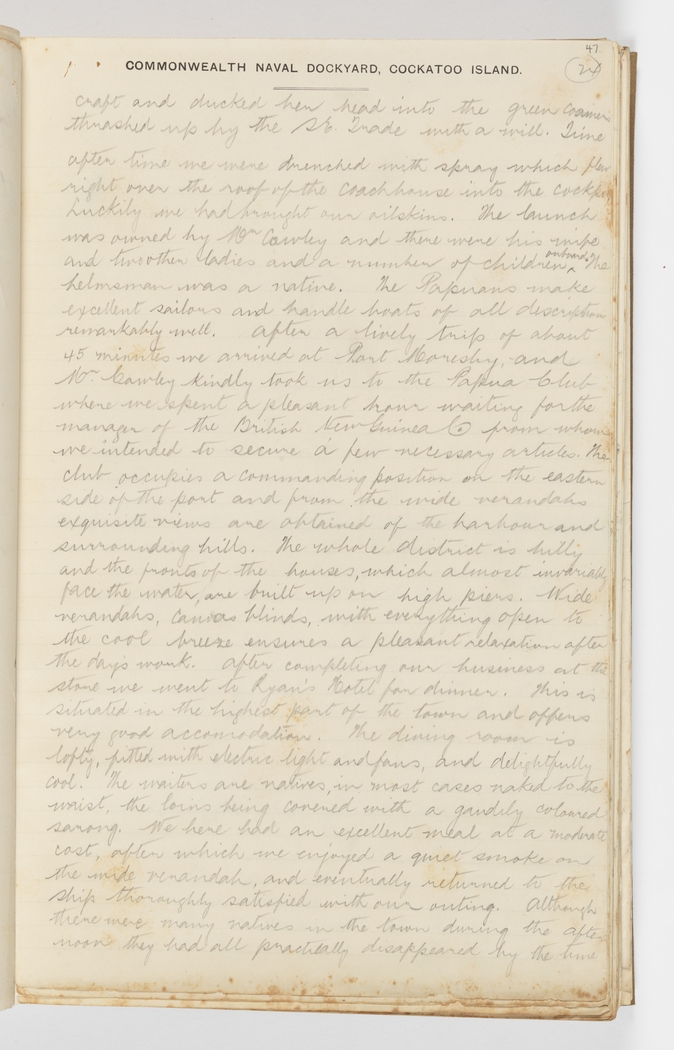 47
24
COMMONWEALTH NAVAL DOCKYARD, COCKATOO ISLAND.
craft and ducked her head into the green
thrashed up by the S.E. Trade with a will. Time
after time we were drenched with spray which flew
right over the roof of the coachhouse into the cockpit
Luckily we had brought our oilskins. The launch
was owned by Mr Cawley and there were his wife
and two other ladies and a number of children onboard. The
helmsman was a native. The Papuans make
excellent sailors and handle boats of all description
remarkably well. After a lively trip of about
45 minutes we arrived at Port Moresby, and
Mr. Cawley kindly took us to the Papua Club
where we spent a pleasant hour waiting for the
manager of the British New Guinea Co from whom
we intended to secure a few necessary articles. The
club occupies a commanding position on the eastern
side of the port and from the wide verandahs
exquisite views are obtained of the harbour and
surrounding hills. The whole district is hilly
and the fronts of the houses, which almost invariably
face the water, are built up on high piers. Wide
verandahs, canvas blinds, with everything open to
the cool breeze ensures a pleasant relaxation after
the days work. After completing our business at the
store we went to Ryan's Hotel for dinner. This is
situated in the highest part of the town and offers
very good accomodation. The dining room is
lofty, fitted with electric light and fans, and delightfully
cool. The waiters are natives, in most cases naked to the
waist, the loins being covered with a gaudily coloured
sarong. We here had an excellent meal at a moderate
cost, after which we enjoyed a quiet smoke on
the wide verandah, and eventually returned to the
ship thoroughly satisfied with our outing. Although
there were many natives in the town during the after
noon they had all practically disappeared by the time